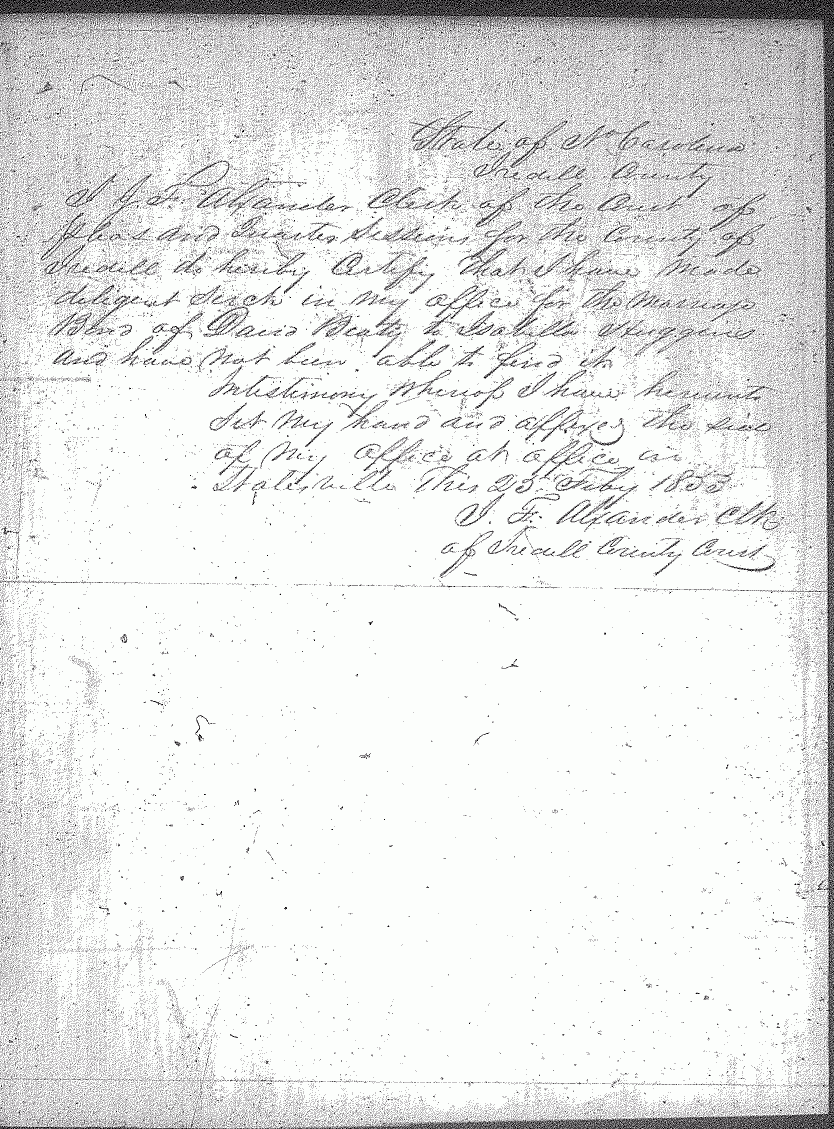 State of No Carolina
Iredell County
I J. F. Alexander Clerk of the Court of
pleas and Quarter Sessions for the County of
Iredell do hereby Certify that I have made
diligent serch in my office for the Marriage
Bond of David Beaty to Isabella Huggins
and have not been able to find it
Intestimony whereof I have hereunto
set my hand and affixed the seal
of my office at office in
Statesville This 23 Feby 1853
J. F. Alexander Clk
of Iredell County Court